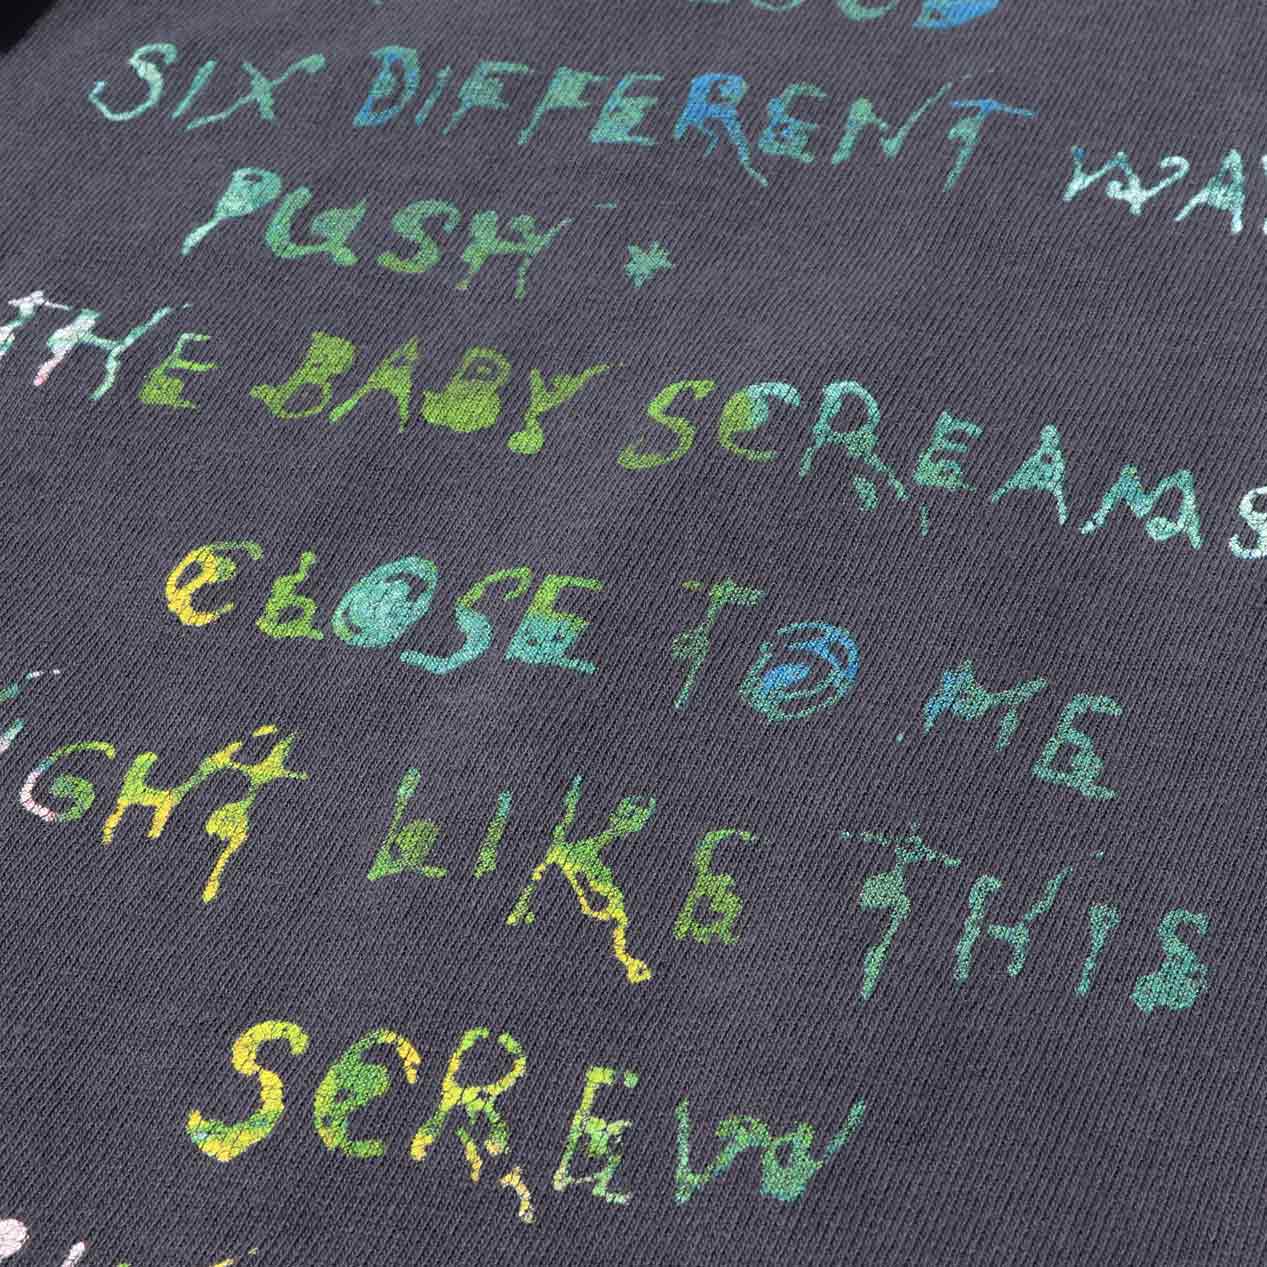 SIX DIFFERENT WAY
PUSH *
THE BABY SCREAMS
CLOSE TO ME
IGHT LIKE THIS
SCREW